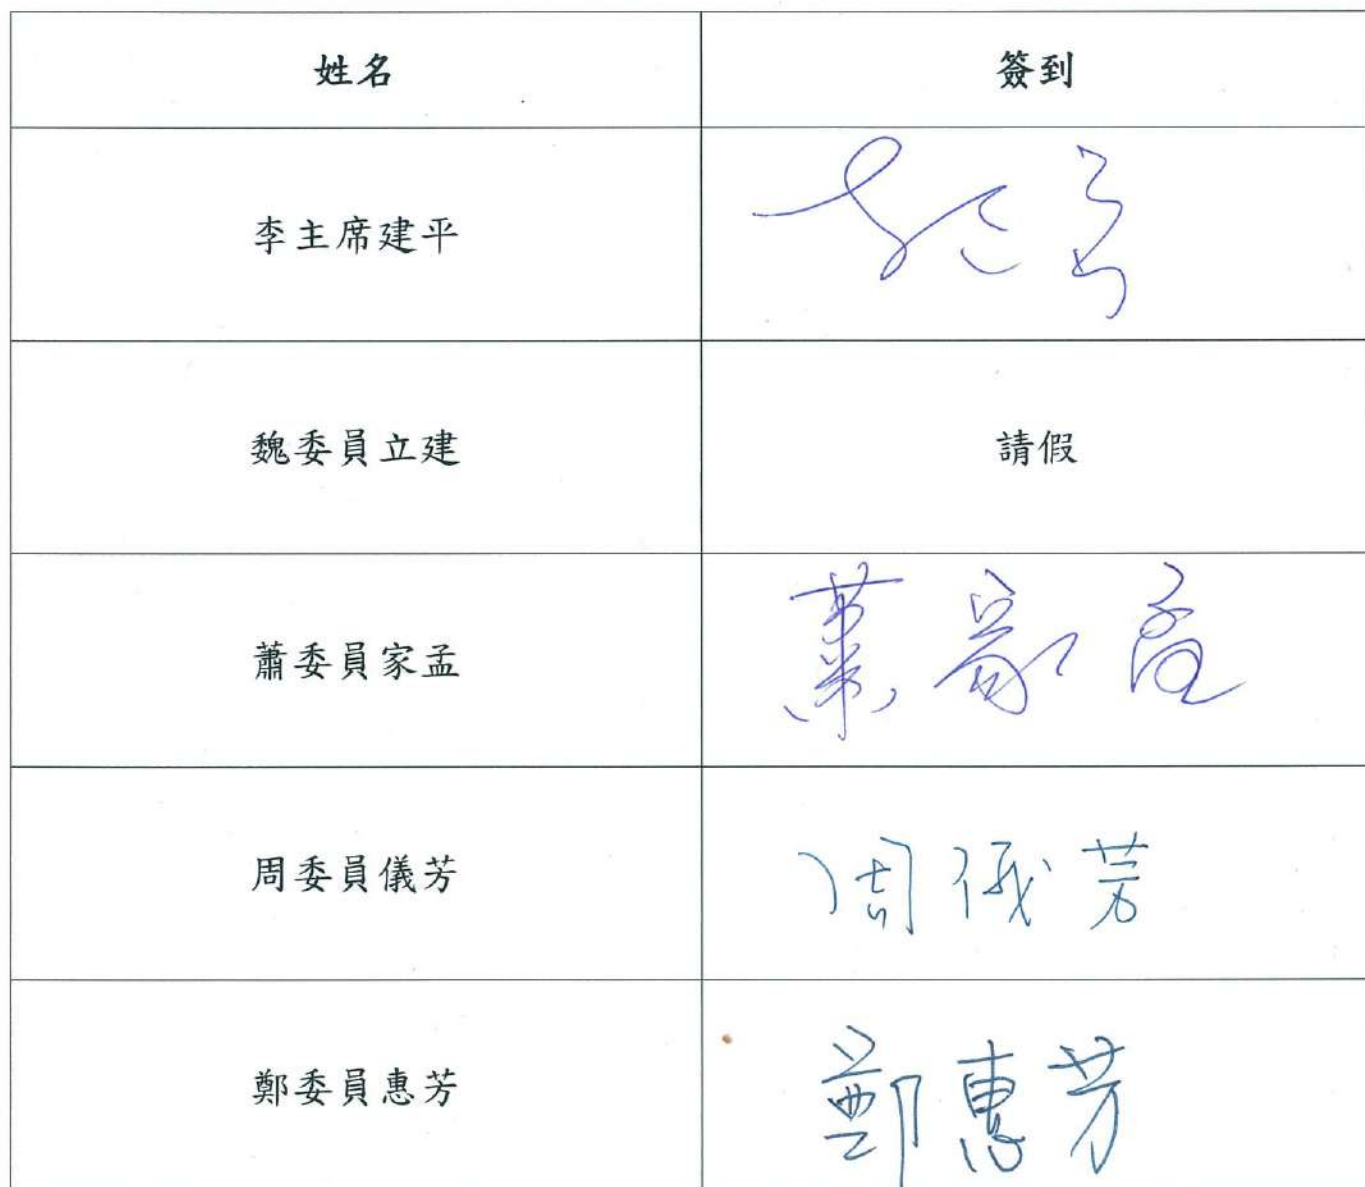 姓名 簽到
李主席建平
魏委員立建 請假
蕭委員家孟 蕭家孟
周委員儀芳 周儀芳
鄭委員惠芳 鄭惠芳